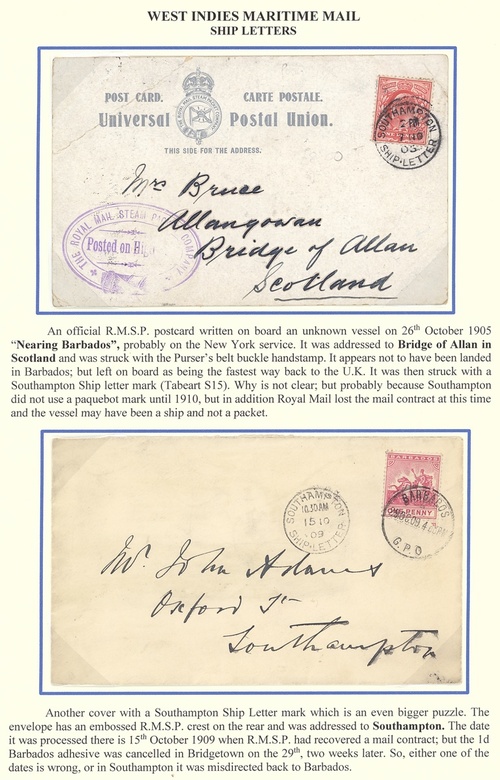 WEST INDIES MARITIME MAIL
SHIP LETTERS
POST CARD. CARTE POSTALE.
Universal Postal Union.
THIS SIDE FOR THE ADDRESS.
SOUTHAMPTON
SHIP-LETTER
Mrs Bruce
Allangowan
Bridge of Allan
Scotland
THE ROYAL MAIL STEAM PACKET COMPANY
Posted on Hig
An official R.M.S.P. postcard written on board an unknown vessel on 26th October 1905
“Nearing Barbados”, probably on the New York service. It was addressed to Bridge of Allan in
Scotland and was struck with the Purser's belt buckle handstamp. It appears not to have been landed
in Barbados; but left on board as being the fastest way back to the U.K. It was then struck with a
Southampton Ship letter mark (Tabeart S15). Why is not clear; but probably because Southampton
did not use a paquebot mark until 1910, but in addition Royal Mail lost the mail contract at this time
and the vessel may have been a ship and not a packet.
BARBADOS
ONE PENNY
BARBADOS
G.P.O
SOUTHAMPTON
10.30AM
15 10
09
SHIP-LETTER
Mr. John Adams
Oxford St
Southampton
Another cover with a Southampton Ship Letter mark which is an even bigger puzzle. The
envelope has an embossed R.M.S.P. crest on the rear and was addressed to Southampton. The date
it was processed there is 15th October 1909 when R.M.S.P. had recovered a mail contract; but the 1d
Barbados adhesive was cancelled in Bridgetown on the 29th, two weeks later. So, either one of the
dates is wrong, or in Southampton it was misdirected back to Barbados.